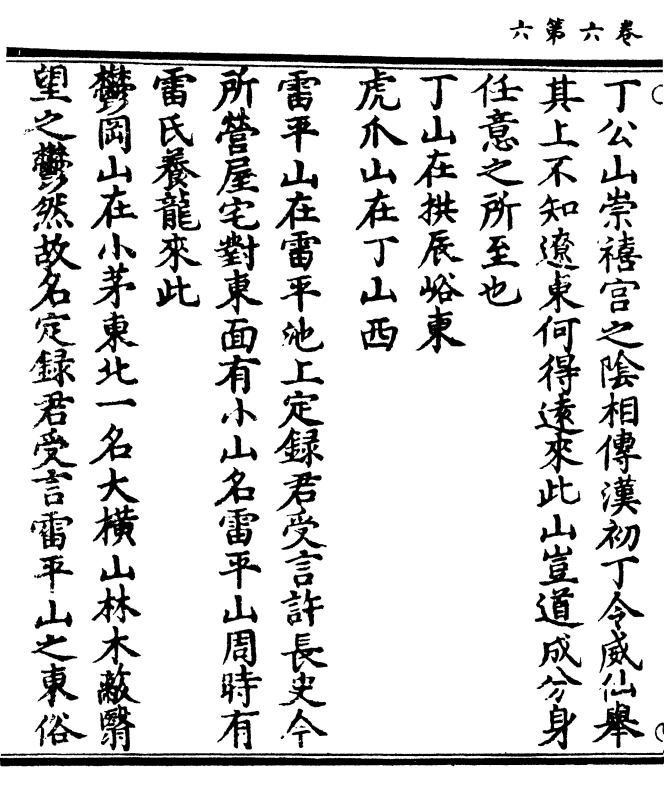 卷六第六
丁公山崇禧宫之陰相傳漢初丁令威仙舉
其上不知遼東何得遠來此山豈道成分身
任意之所至也
丁山在拱辰峪東
虎爪山在丁山西
雷平山在雷平池上定録君受言許長史今
所營屋宅對東面有小山名雷平山周時有
雷氏養龍來此
鬱岡山在小茅東北一名大橫山林木蔽翳
望之鬱然故名定録君受言雷平山之東俗